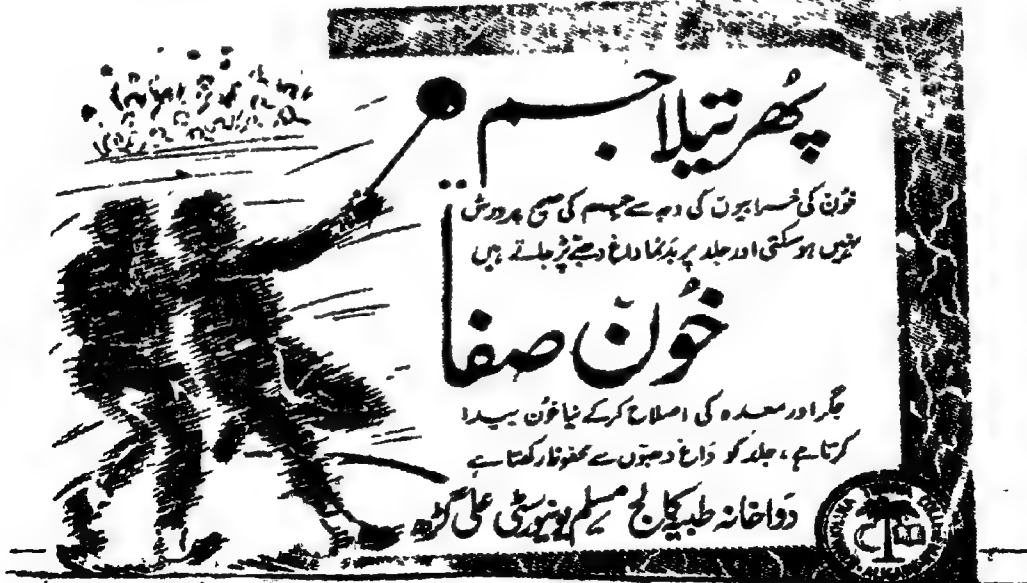 پھُرتیلا جسم
خوُن کی خرابیوں کی وجہ سے جسم کی صحیح پرورش
نہیں ہوسکتی اور جلد پر بدنما داغ دھبے پڑ جاتے ہیں
خوُن صفا
جگر اور معدہ کی اصلاح کرکے نیا خوُن پیدا
کرتا ہے، جلد کو داغ دھبوں سے محفوظ رکھتا ہے
دواخانہ طبیہ کالج مسلم یونیورسٹی علی گڑھ